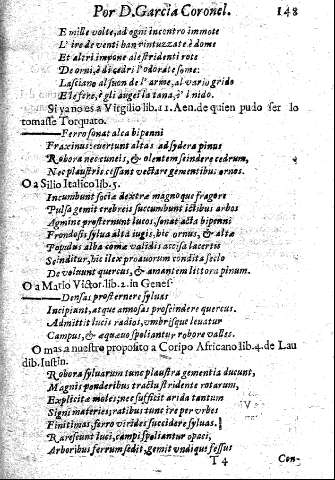 Por D. Garcia Coronel. 148
E mille volte, ad ogni incontro immote
L'ire de venti han rintuzzate è dome
Et altri impone ale stridenti rote
De orni, è di cedri l'odorate some:
Lasciano al suon de l'arme, al vario grido
E le fère, è gli augei la tana, è'l nido.
Si ya no es a Virgilio lib. 11. Aen. de quien pudo ser lo
tomasse Torquato.
Ferro sonat alca bipenni
Fraxinus: evertunt altas ad sydera pinus
Robora nec cuneis, & olentem scindere cedrum,
Nec plaustris cessant vectare gementibus ornos.
O a Silio Italico lib. 5.
Incumbunt sociæ dextræ magnoque fragore
Pulsa gemit crebris succumbunt ictibus arbos
Agmine prosternunt lucos, sonat acta bipenni
Frondosis sylva alta iugis, hic ornus, & altæ
Populus alba comæ validis accisa lacertis
Scinditur, hic ilex proavorum condita seclo
De volvunt quercus, & amantem littora pinum.
O a Mario Victor. lib. 2. in Genes
Densas prosternere sylvas
Incipiunt, atque annosas proscindere quercus.
Admittit lucis radios, umbrisque levatur
Campus, & æquævo spoliantur robore valles.
O mas a nuestro proposito a Coripo Africano lib. 4. de Lau
dib. Iustin.
Robora sylvarum tunc plaustra gementia ducunt,
Magnis ponderibus tractu stridente rotarum,
Explicitæ moles; nec sufficit arida tantum
Signi materies; ratibus tunc ire per urbes
Finitimas, ferro virides succidere sylvas.
Rarescunt luci, campi spoliantur opaci,
Arboribus ferrum sedit, gemit undique fessus
T 4 Con-